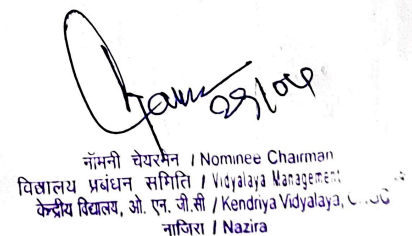 29/04
नॉमनी चेयरमेन / Nominee Chairman
विद्यालय प्रबंधन समिति / Vidyalaya Management
केन्द्रीय विद्यालय, ओ. एन. जी.सी / Kendriya Vidyalaya,
नाजिरा / Nazira